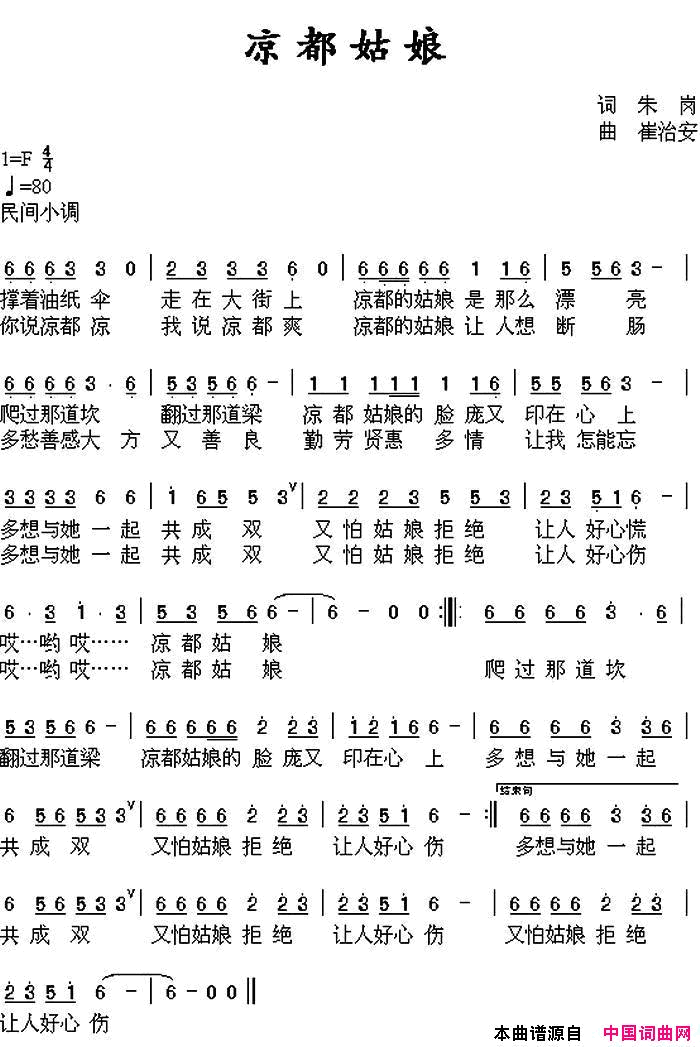 凉都姑娘
词 朱 岗
曲 崔治安
1=F 4/4
♩=80
民间小调
6 6 6 3 3 0 | 2 3 3 3 6 0 | 6 6 6 6 6 1 1 6 | 5 5 6 3 – |
撑着油纸伞 走在大街上 凉都的姑娘是那么漂 亮
你说凉都凉 我说凉都爽 凉都的姑娘让人想断 肠
6 6 6 6 3 · 6 | 5 3 5 6 6 – | 1 1 1 1 1 1 1 6 | 5 5 5 6 3 – |
爬过那道坎 翻过那道梁 凉都姑娘的脸庞又 印在心上
多愁善感大方 又善良 勤劳贤惠多情 让我怎能忘
3 3 3 3 6 6 | 1 6 5 5 3 V | 2 2 2 3 5 5 3 | 2 3 5 1 6 – |
多想与她一起 共成 双 又怕姑娘拒绝 让人好心慌
多想与她一起 共成 双 又怕姑娘拒绝 让人好心伤
6 · 3 1 · 3 | 5 3 5 6 6 – | 6 – 0 0 :‖: 6 6 6 6 3 · 6 |
哎…哟哎…… 凉都姑 娘
哎…哟哎…… 凉都姑 娘 爬过那道坎
5 3 5 6 6 – | 6 6 6 6 6 2 2 3 | 1 2 1 6 6 – | 6 6 6 6 3 3 6 |
翻过那道梁 凉都姑娘的脸庞又 印在心上 多想与她一起
结束句
6 5 6 5 3 3 V | 6 6 6 6 2 2 3 | 2 3 5 1 6 – :‖ 6 6 6 6 3 3 6 |
共 成 双 又怕姑娘拒绝 让人好心伤 多想与她一起
6 5 6 5 3 3 V | 6 6 6 6 2 2 3 | 2 3 5 1 6 – | 6 6 6 6 2 2 3 |
共 成 双 又怕姑娘拒绝 让人好心伤 又怕姑娘拒绝
2 3 5 1 6 – | 6 – 0 0 ‖
让人好心 伤
本曲谱源自 中国词曲网